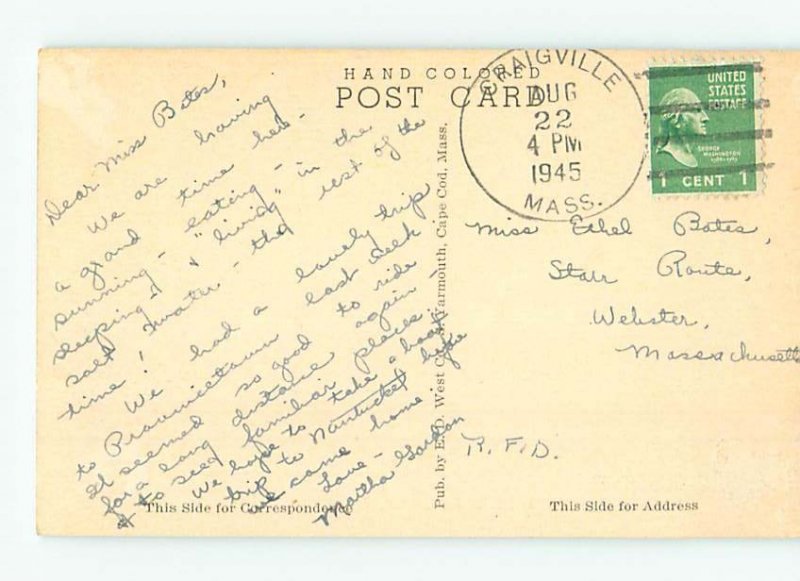 HAND COLORED
POST CARD
CRAIGVILLE
AUG
22
4 PM
1945
MASS.
UNITED
STATES
POSTAGE
GEORGE
WASHINGTON
1 CENT 1
Dear Miss Bates,
We are having
a grand time here -
sunning - eating - in the
sleeping - & "living"
salt water - the rest of the
time!
We had a lovely trip
to Provincetown last week.
It seemed so good to ride
for a long distance again -
& to see familiar places
We hope to take a boat
trip to Nantucket before
we come home
Love -
Martha Gordon
Pub. by E. D. West Co., S. Yarmouth, Cape Cod, Mass.
Miss Ethel Bates,
Starr Route,
Webster,
Massachusetts
R.F.D.
This Side for Correspondence
This Side for Address